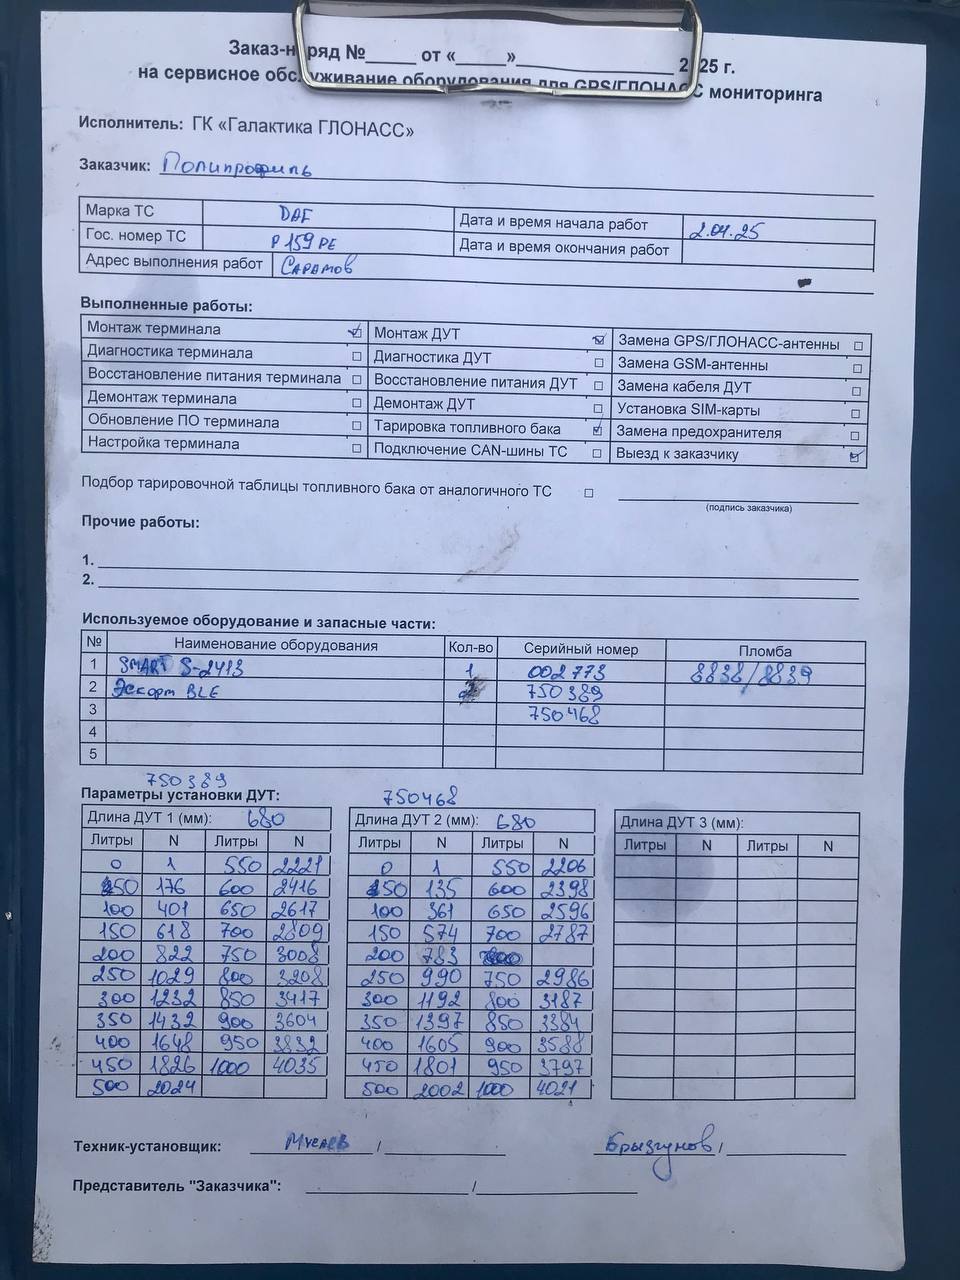 Заказ-наряд №_____ от «_____»_______________ 2025 г.
на сервисное обслуживание оборудования для GPS/ГЛОНАСС мониторинга
Исполнитель: ГК «Галактика ГЛОНАСС»
Заказчик: Полипрофиль
Марка ТС DAF Дата и время начала работ 2.04.25
Гос. номер ТС Р 159 РЕ Дата и время окончания работ
Адрес выполнения работ Саратов
Выполненные работы:
Монтаж терминала ☑ Монтаж ДУТ ☑ Замена GPS/ГЛОНАСС-антенны ☐
Диагностика терминала ☐ Диагностика ДУТ ☐ Замена GSM-антенны ☐
Восстановление питания терминала ☐ Восстановление питания ДУТ ☐ Замена кабеля ДУТ ☐
Демонтаж терминала ☐ Демонтаж ДУТ ☐ Установка SIM-карты ☐
Обновление ПО терминала ☐ Тарировка топливного бака ☑ Замена предохранителя ☐
Настройка терминала ☐ Подключение CAN-шины ТС ☐ Выезд к заказчику ☑
Подбор тарировочной таблицы топливного бака от аналогичного ТС ☐
(подпись заказчика)
Прочие работы:
1.
2.
Используемое оборудование и запасные части:
№ Наименование оборудования Кол-во Серийный номер Пломба
1 SMART S-2413 1 002773 8838/8839
2 Эскорт BLE 2 750389
3 750468
4
5
750389 750468
Параметры установки ДУТ:
Длина ДУТ 1 (мм): 680 Длина ДУТ 2 (мм): 680 Длина ДУТ 3 (мм):
Литры N Литры N Литры N Литры N Литры N Литры N
0 1 550 2221 0 1 550 2206
50 176 600 2416 50 135 600 2398
100 401 650 2617 100 361 650 2596
150 618 700 2809 150 574 700 2787
200 822 750 3008 200 783
250 1029 800 3208 250 990 750 2986
300 1232 850 3417 300 1192 800 3187
350 1432 900 3604 350 1397 850 3384
400 1648 950 3832 400 1605 900 3588
450 1826 1000 4035 450 1801 950 3797
500 2024 500 2002 1000 4021
Техник-установщик: Мусаев / Брызгунов /
Представитель "Заказчика": /